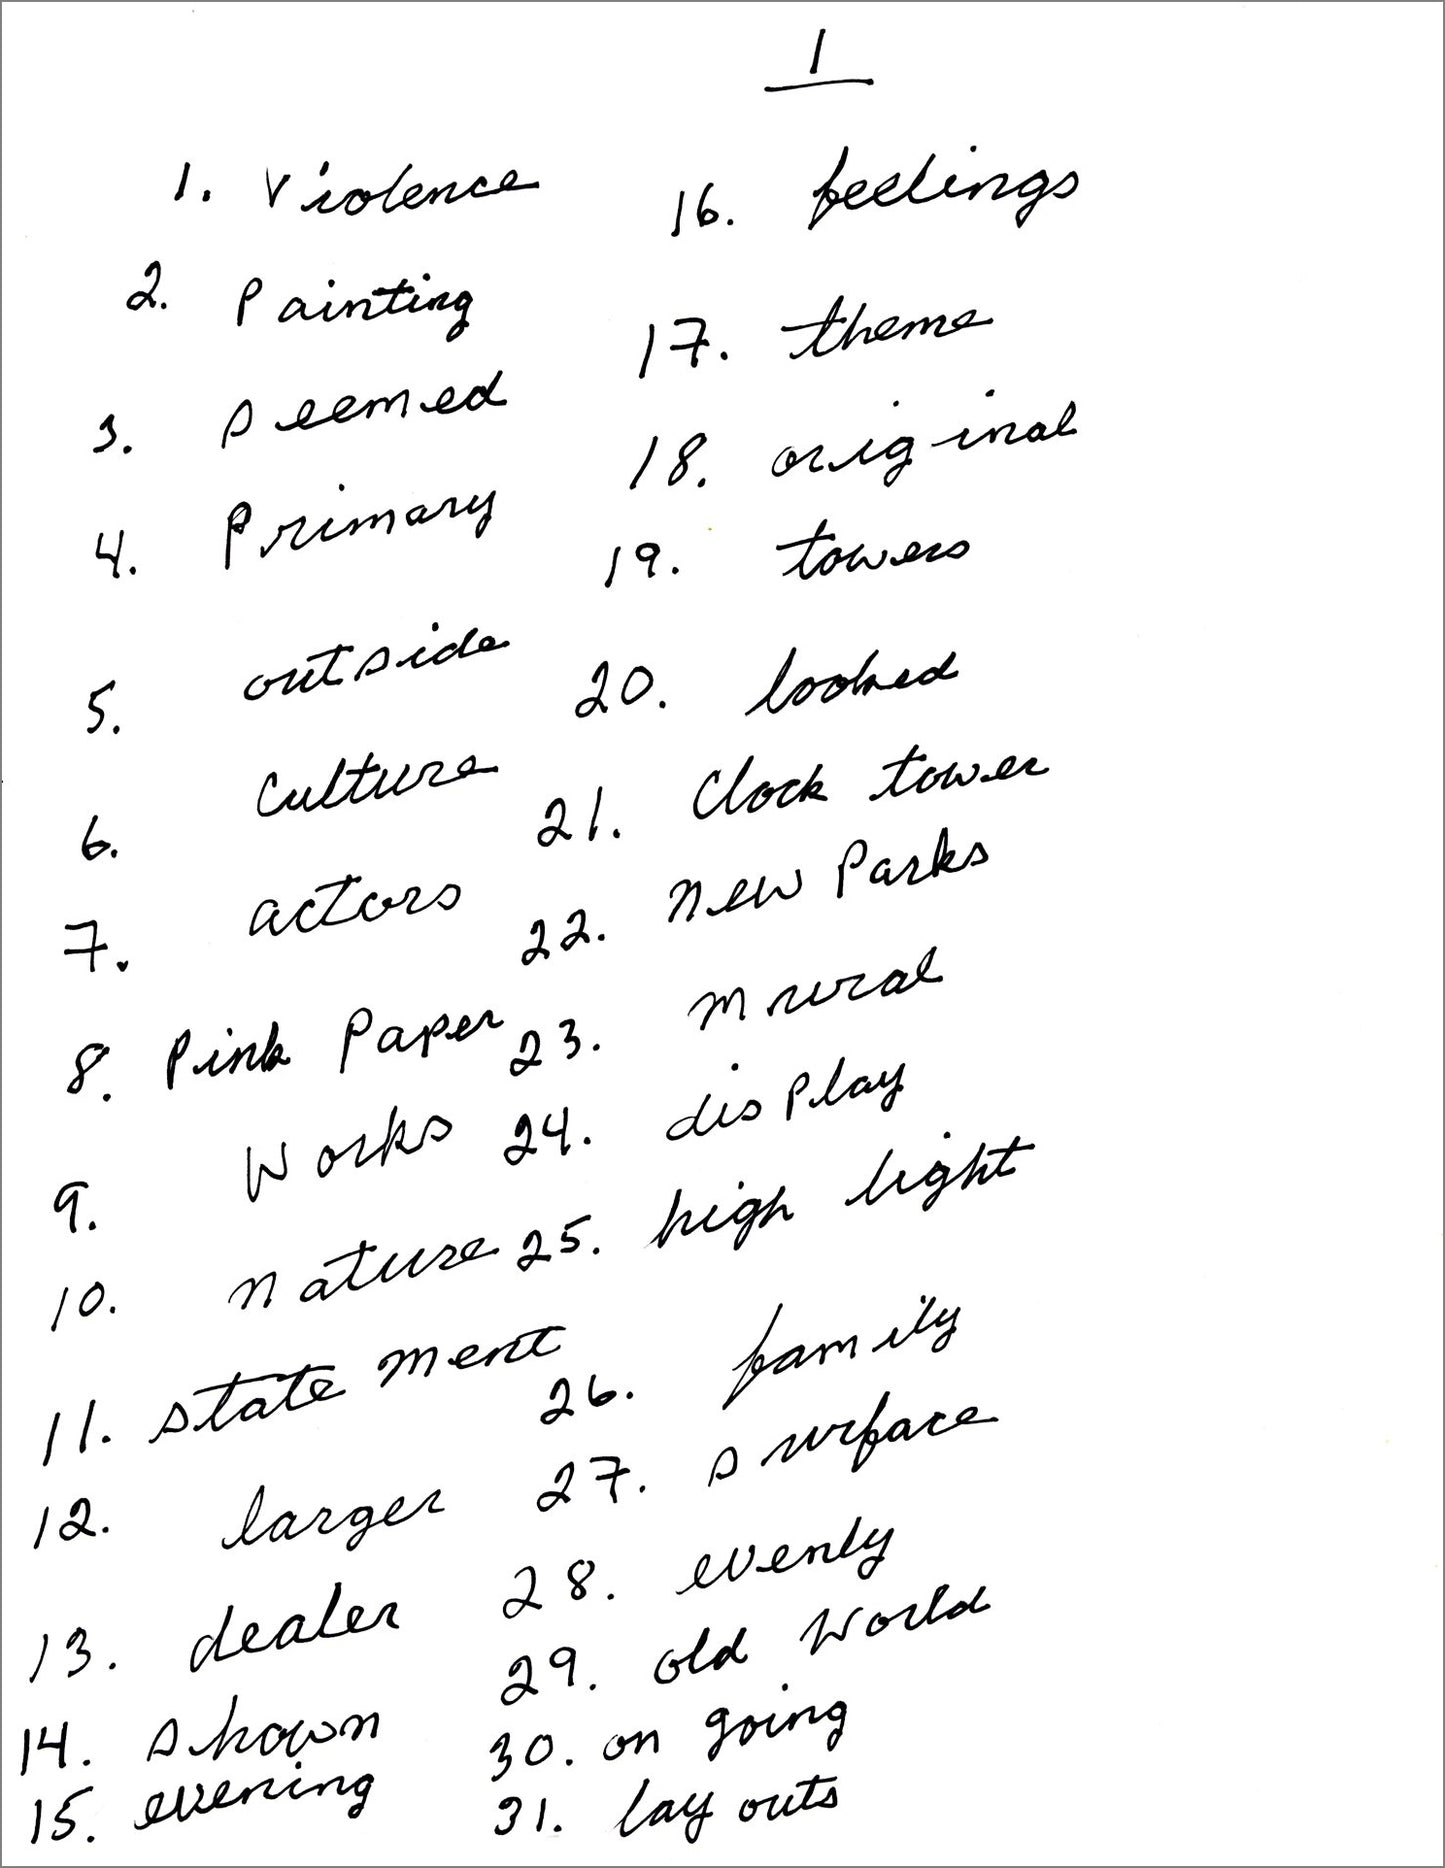 1
1. Violence
2. Painting
3. seemed
4. Primary
5. outside
6. Culture
7. actors
8. Pink Paper
9. Works
10. nature
11. state ment
12. larger
13. dealer
14. shown
15. evening
16. feelings
17. theme
18. original
19. towers
20. looked
21. Clock tower
22. new Parks
23. mural
24. display
25. high light
26. family
27. surface
28. evenly
29. old World
30. on going
31. lay outs